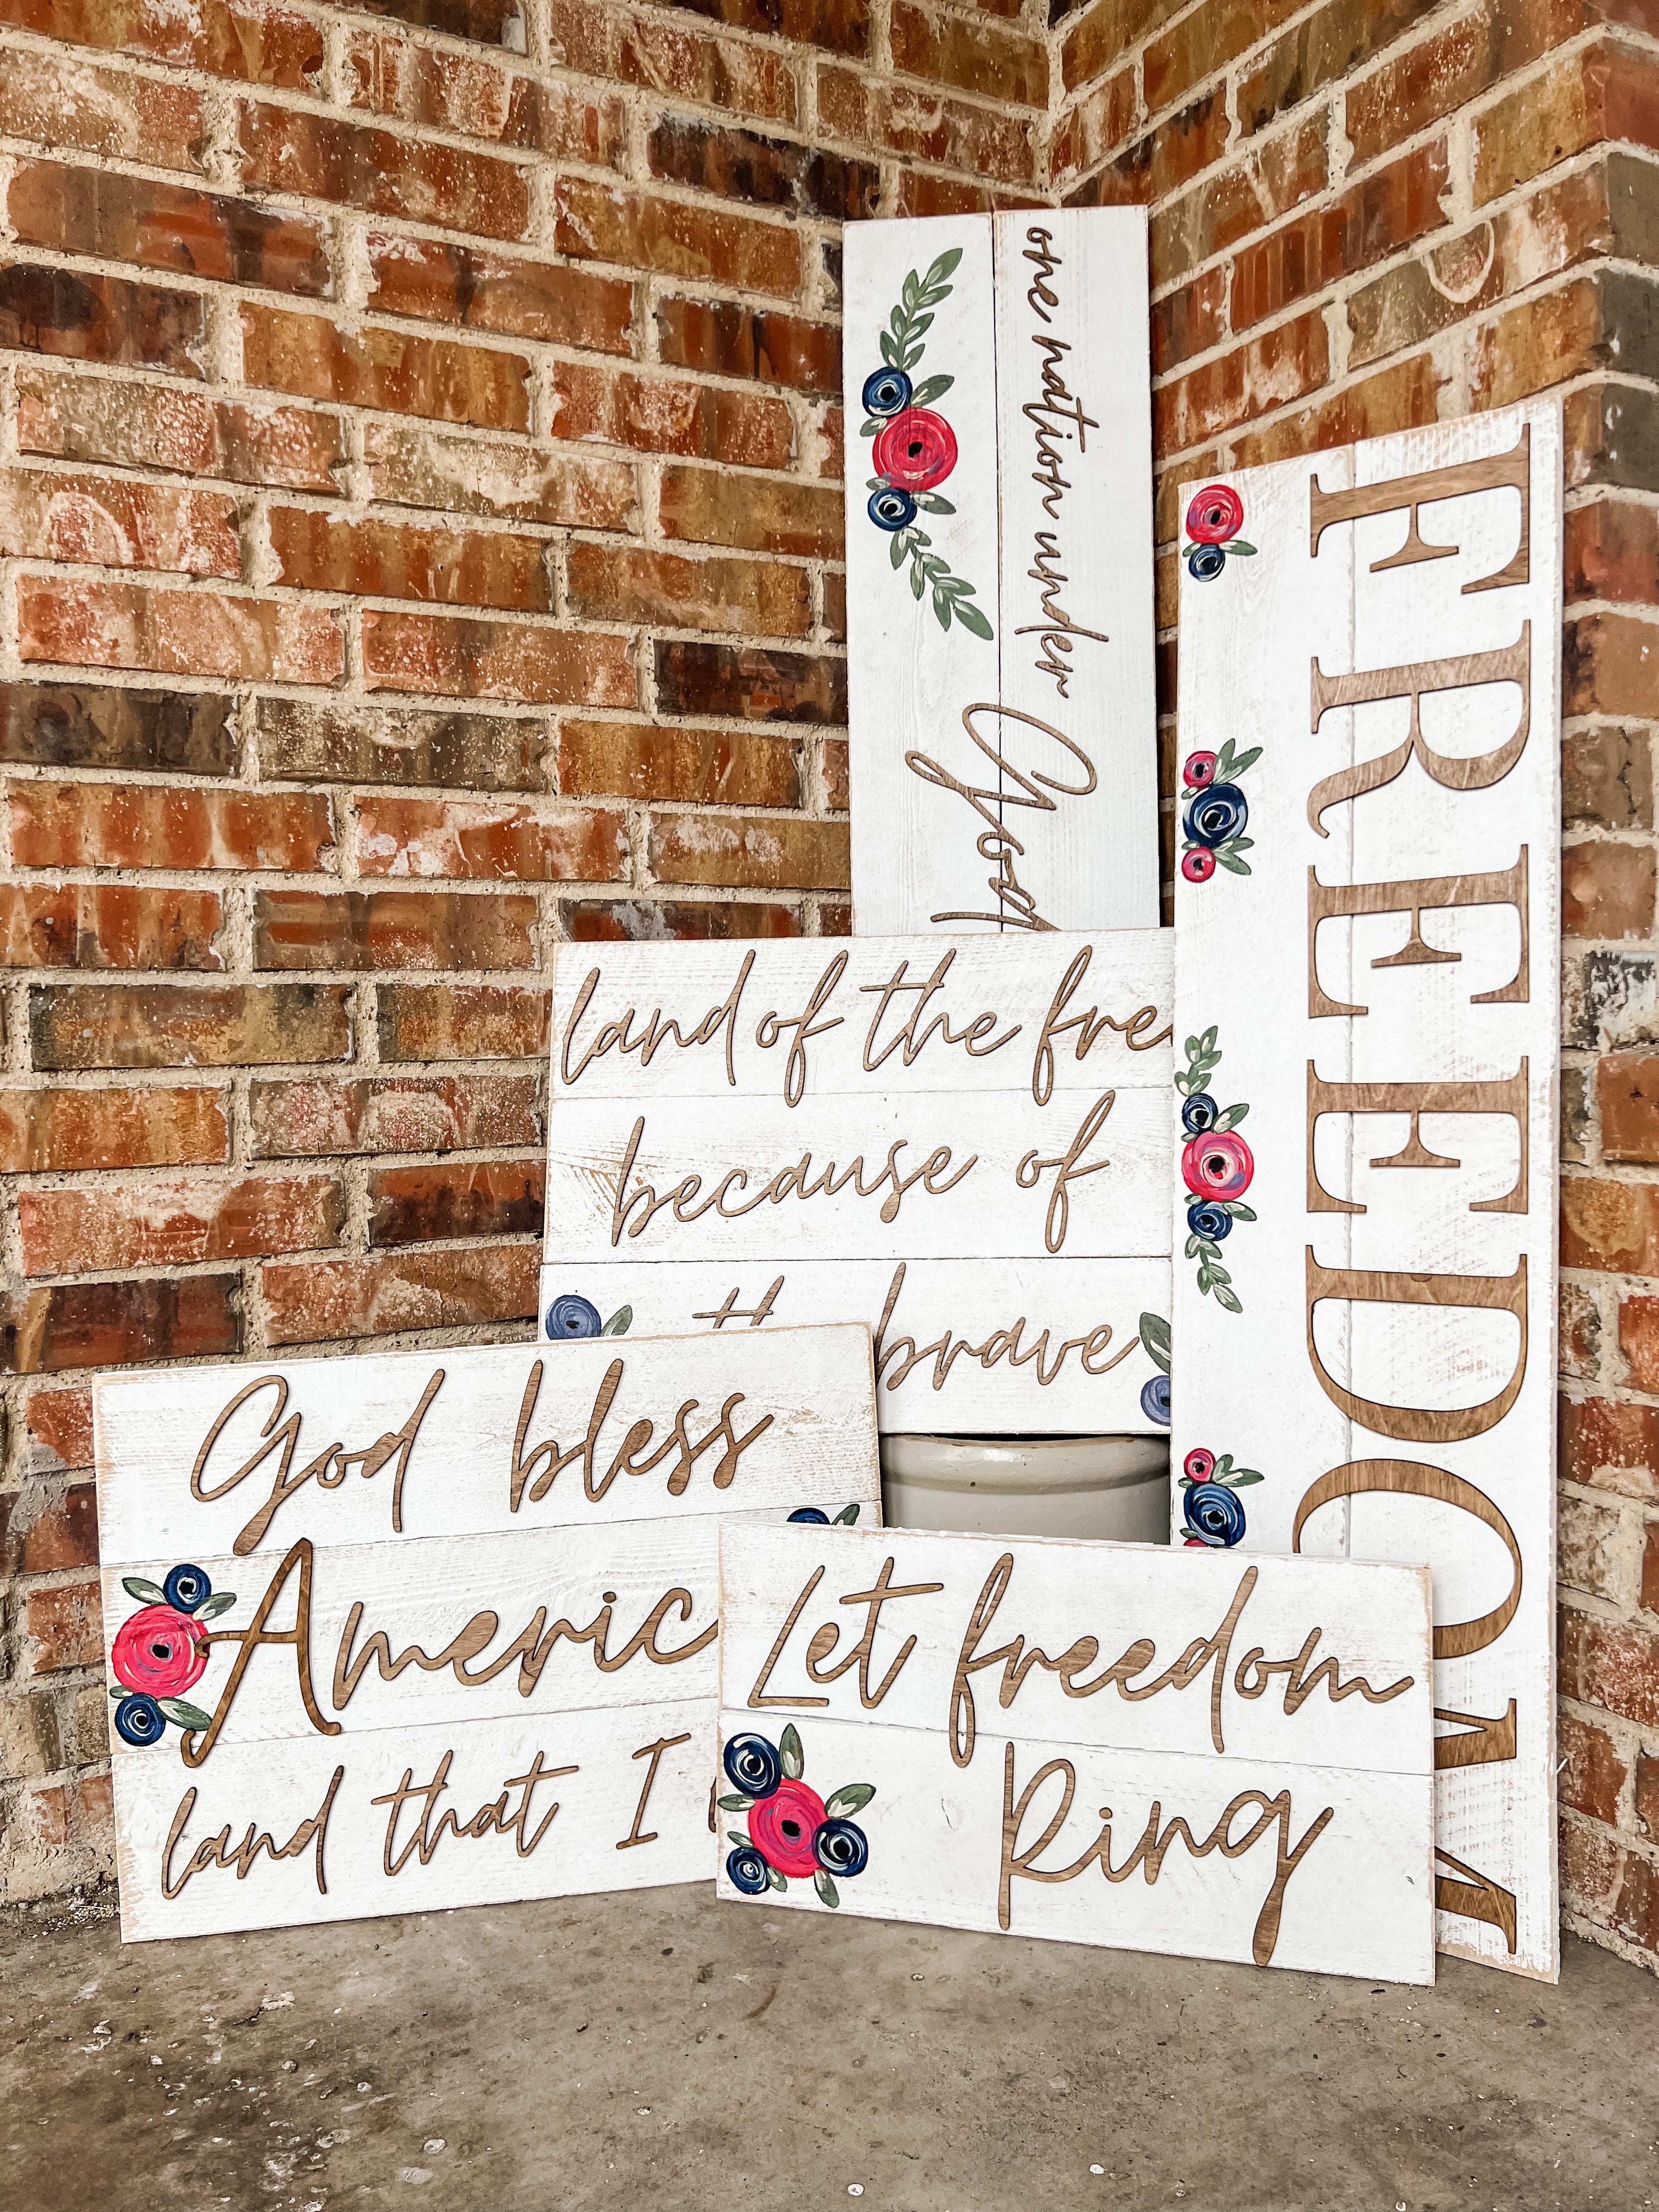 one nation under
God
FREEDOM
land of the fre
because of
th brave
God bless
Americ
land that I
Let freedom
Ring